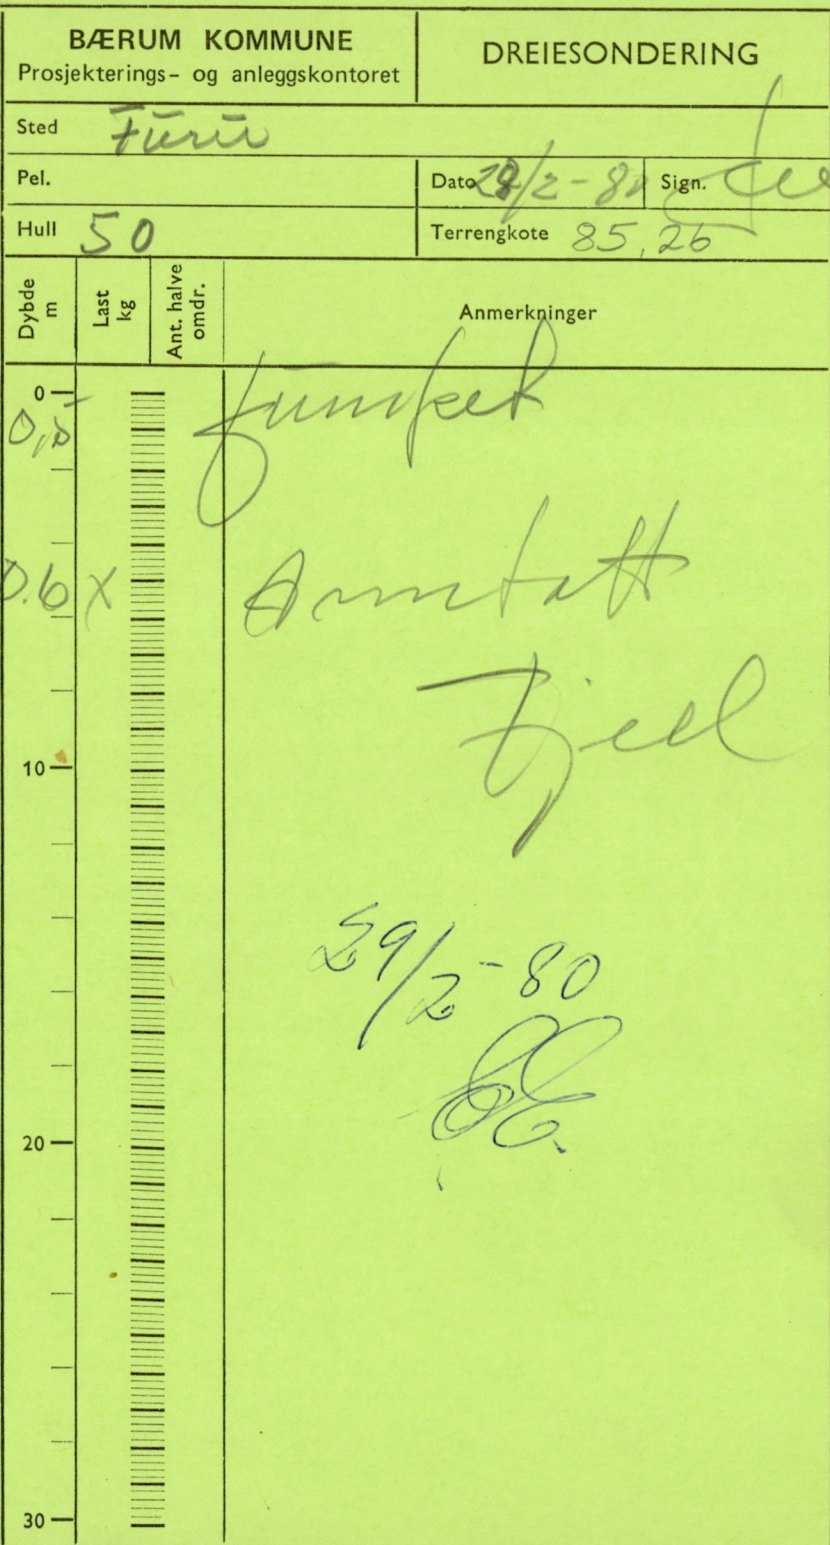 BÆRUM KOMMUNE
Prosjekterings- og anleggskontoret
DREIESONDERING
Sted Furu
Pel.
Dato 28/2-80 Sign.
Hull 50
Terrengkote 85,26
Dybde m
Last kg
Ant. halve omdr.
Anmerkninger
0
0,5
0.6 X Anntatt
Fjell
10
29/2-80
20
30